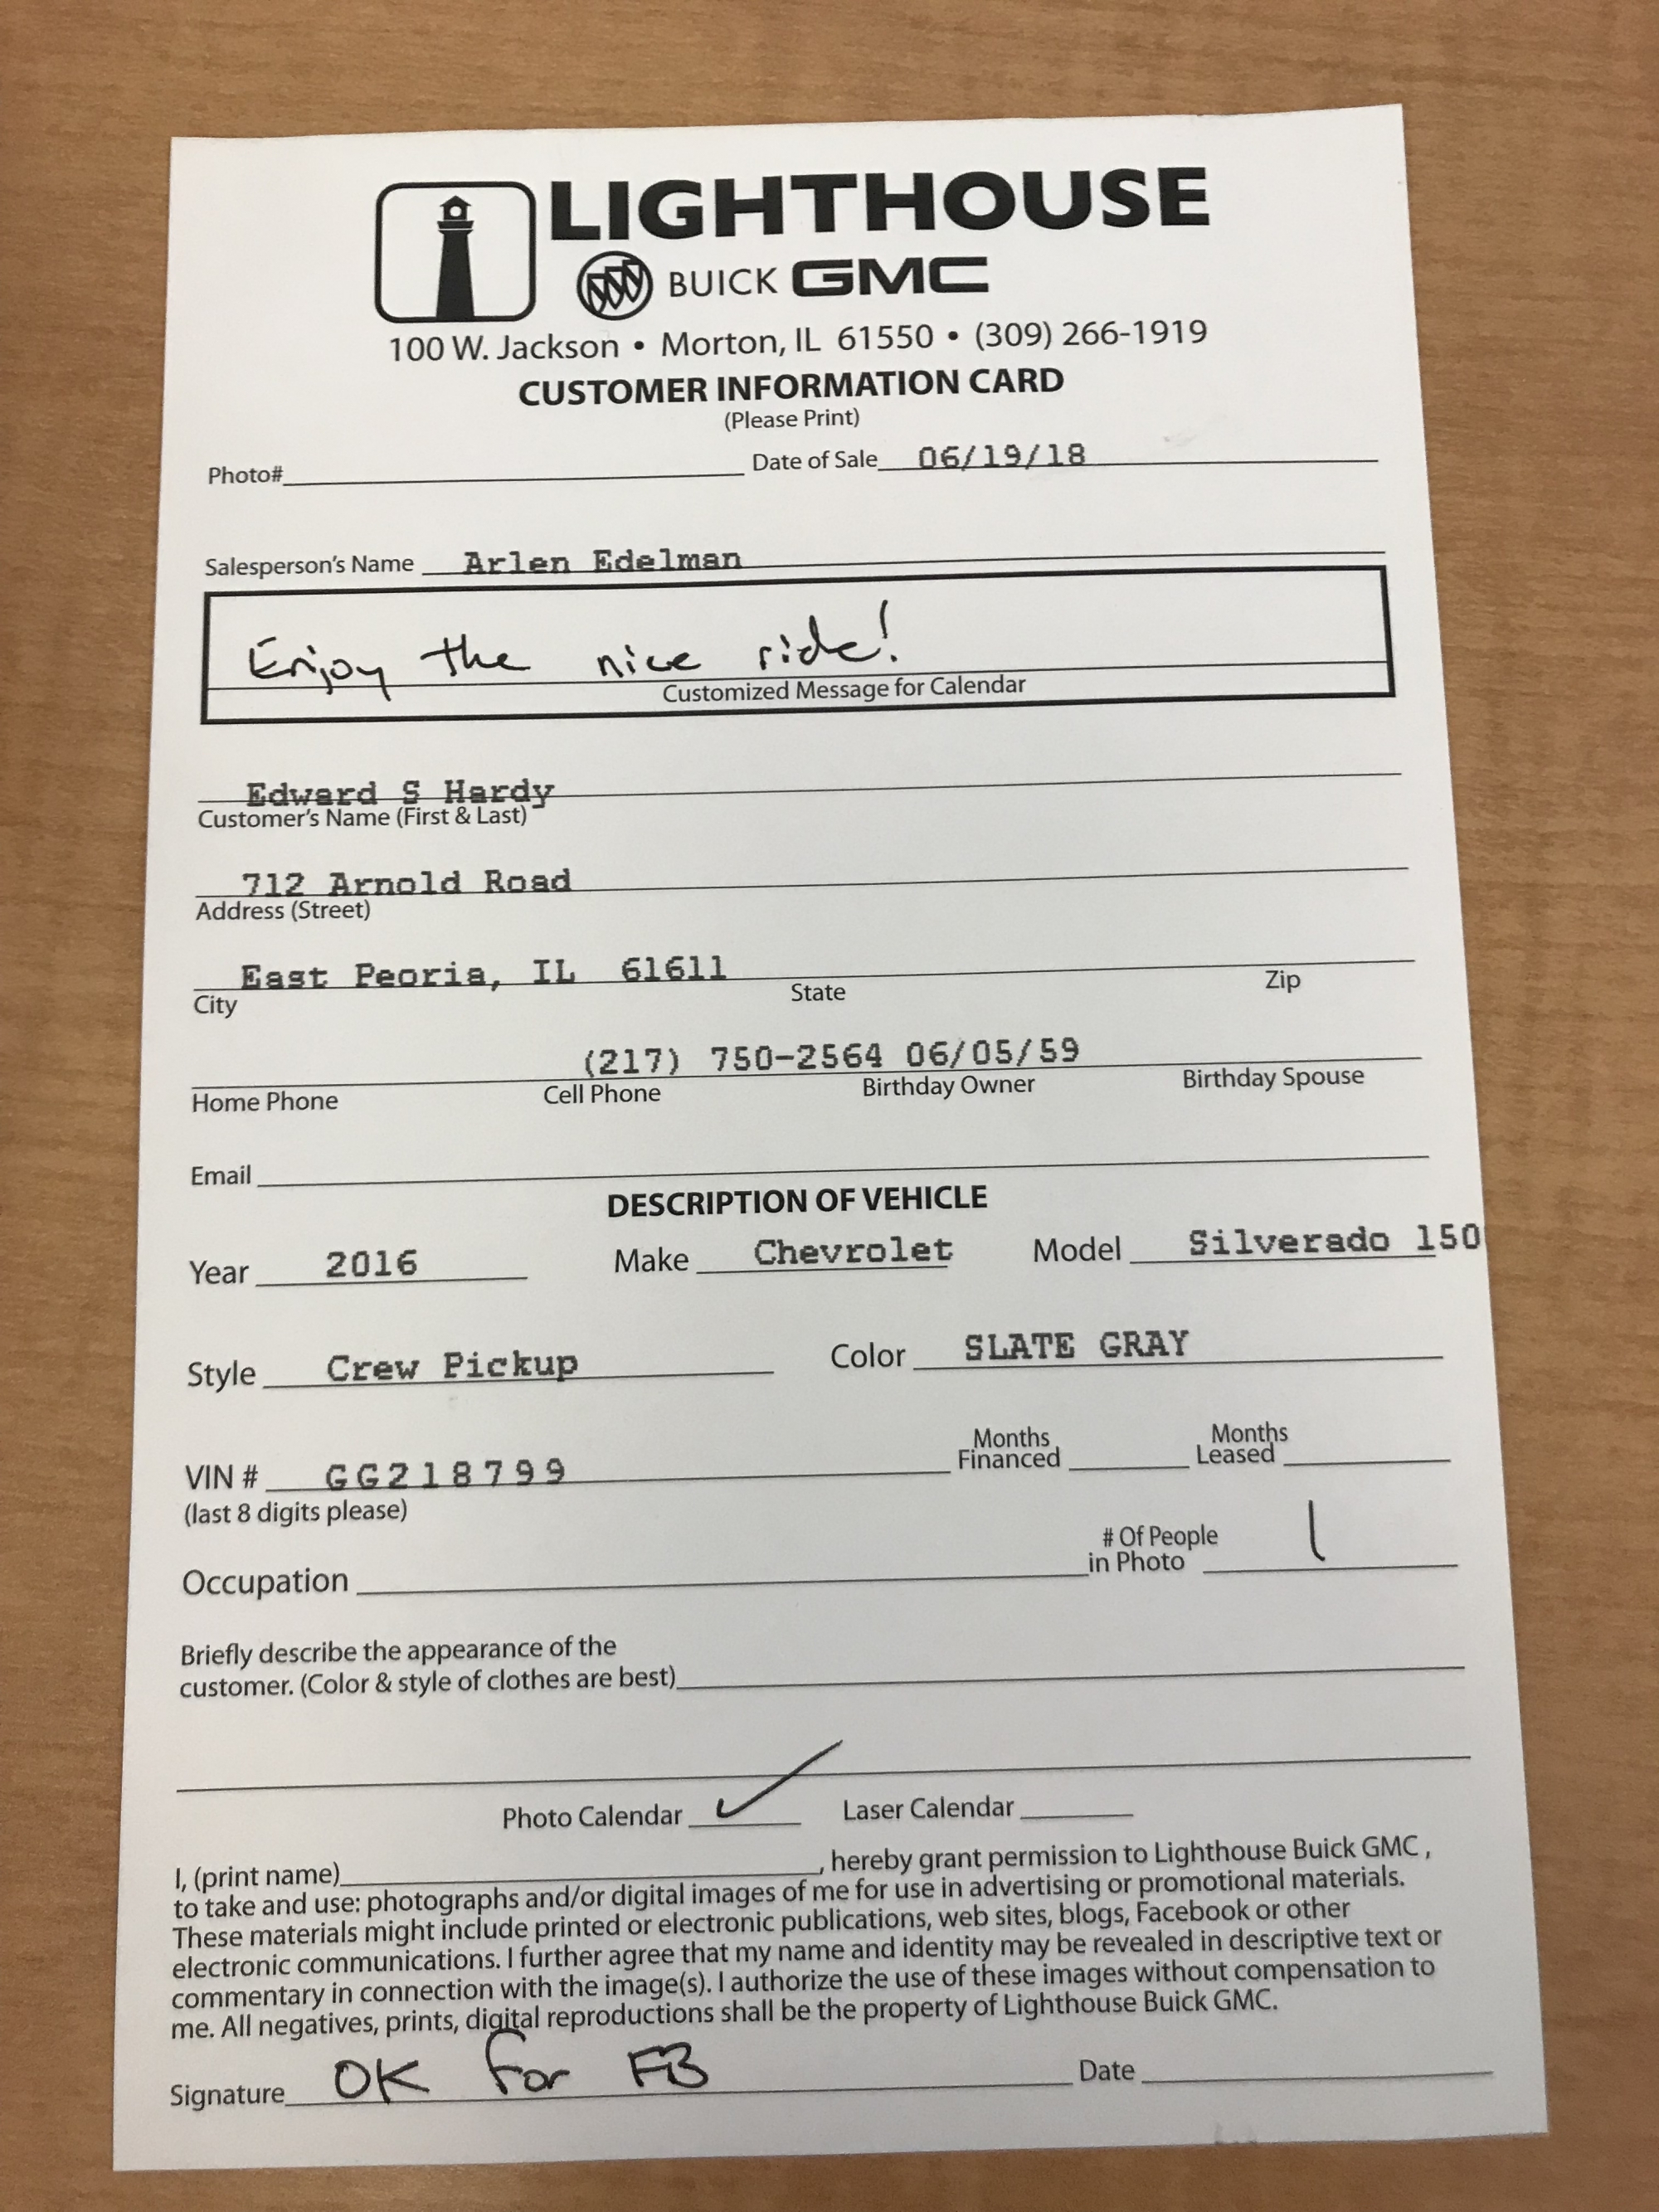 LIGHTHOUSE
BUICK GMC
100 W. Jackson • Morton, IL 61550 • (309) 266-1919
CUSTOMER INFORMATION CARD
(Please Print)
Photo# Date of Sale 06/19/18
Salesperson's Name Arlen Edelman
Enjoy the nice ride!
Customized Message for Calendar
Edward S Hardy
Customer's Name (First & Last)
712 Arnold Road
Address (Street)
East Peoria, IL 61611
City State Zip
(217) 750-2564 06/05/59
Home Phone Cell Phone Birthday Owner Birthday Spouse
Email
DESCRIPTION OF VEHICLE
Year 2016 Make Chevrolet Model Silverado 150
Style Crew Pickup Color SLATE GRAY
Months Months
VIN # GG218799 Financed Leased
(last 8 digits please)
# Of People 1
Occupation in Photo
Briefly describe the appearance of the
customer. (Color & style of clothes are best)
Photo Calendar ✓ Laser Calendar
I, (print name) , hereby grant permission to Lighthouse Buick GMC ,
to take and use: photographs and/or digital images of me for use in advertising or promotional materials.
These materials might include printed or electronic publications, web sites, blogs, Facebook or other
electronic communications. I further agree that my name and identity may be revealed in descriptive text or
commentary in connection with the image(s). I authorize the use of these images without compensation to
me. All negatives, prints, digital reproductions shall be the property of Lighthouse Buick GMC.
Signature OK for FB Date